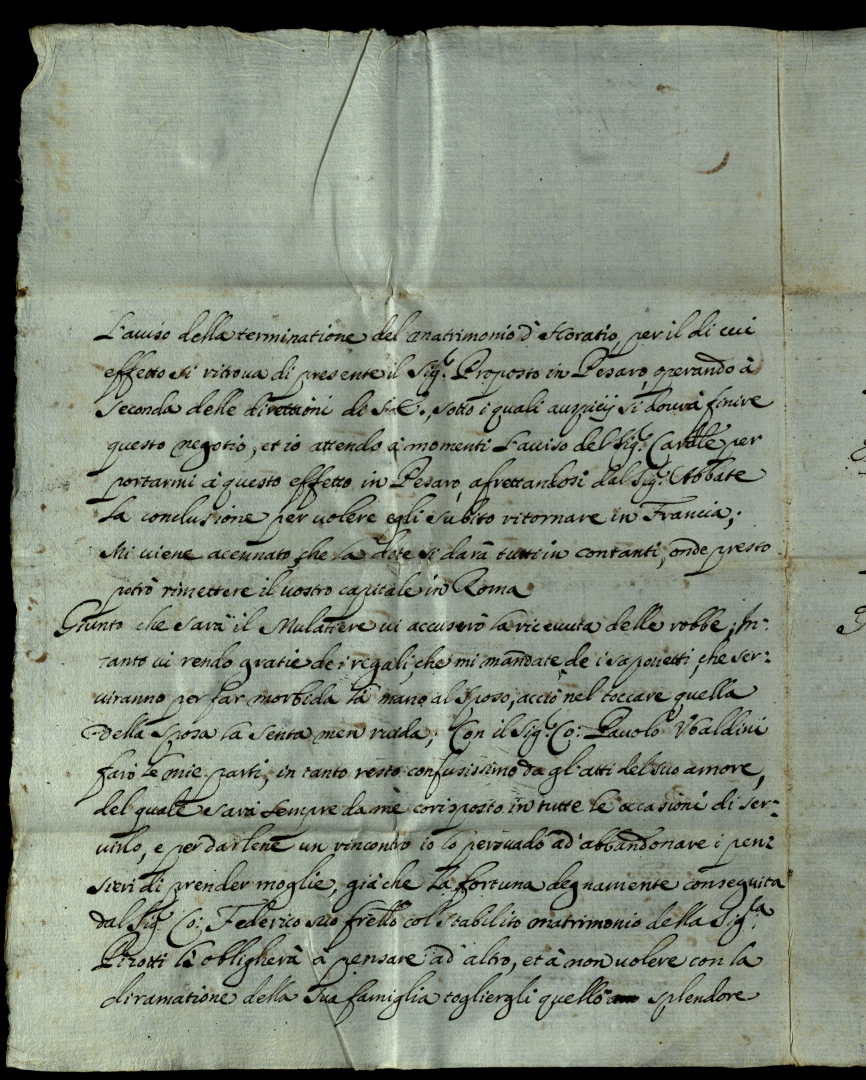 L'auiso della terminatione del matrimonio d'Horatio, per il di cui
effetto si ritroua di presente il Sig.r Proposto in Pesaro, operando à
seconda delle direttioni di S.E., sotto i quali auspicij si dourà finire
questo negotio, et io attendo à momenti l'auiso del Sig.r Car.le per
portarmi à questo effetto in Pesaro, afrettandosi dal Sig.r Abbate
la conclusione per uolere egli subito ritornare in Francia;
Mi uiene acennato, che la dote si darà tutti in contanti, onde presto
potrò rimettere il uostro capitale in Roma
Giunto che sarà il Mulatiere ui accuserò la riceuuta delle robbe, In-
tanto ui rendo gratie de i regali, che mi mandate, de i saponetti, che ser-
uiranno per far morbida la mano al Sposo, acciò nel toccare quella
della Sposa la senta men ruida; Con il Sig.r Co: Pauolo Vbaldini
farò le mie parti, in tanto resto confusissimo da gl'atti del suo amore,
del quale sarà sempre da mè corisposto in tutte le occasioni di ser-
uirlo, e per darlene un rincontro io lo persuado ad'abbandonare i pen-
sieri di prender moglie, già che la fortuna degnamente conseguita
dal Sig.r Co: Federico suo frello col stabilito matrimonio della Sig.la
Pizotti l'obligherà à pensare ad'altro, et à non uolere con la
diramatione della sua famiglia togliergli quello splendore